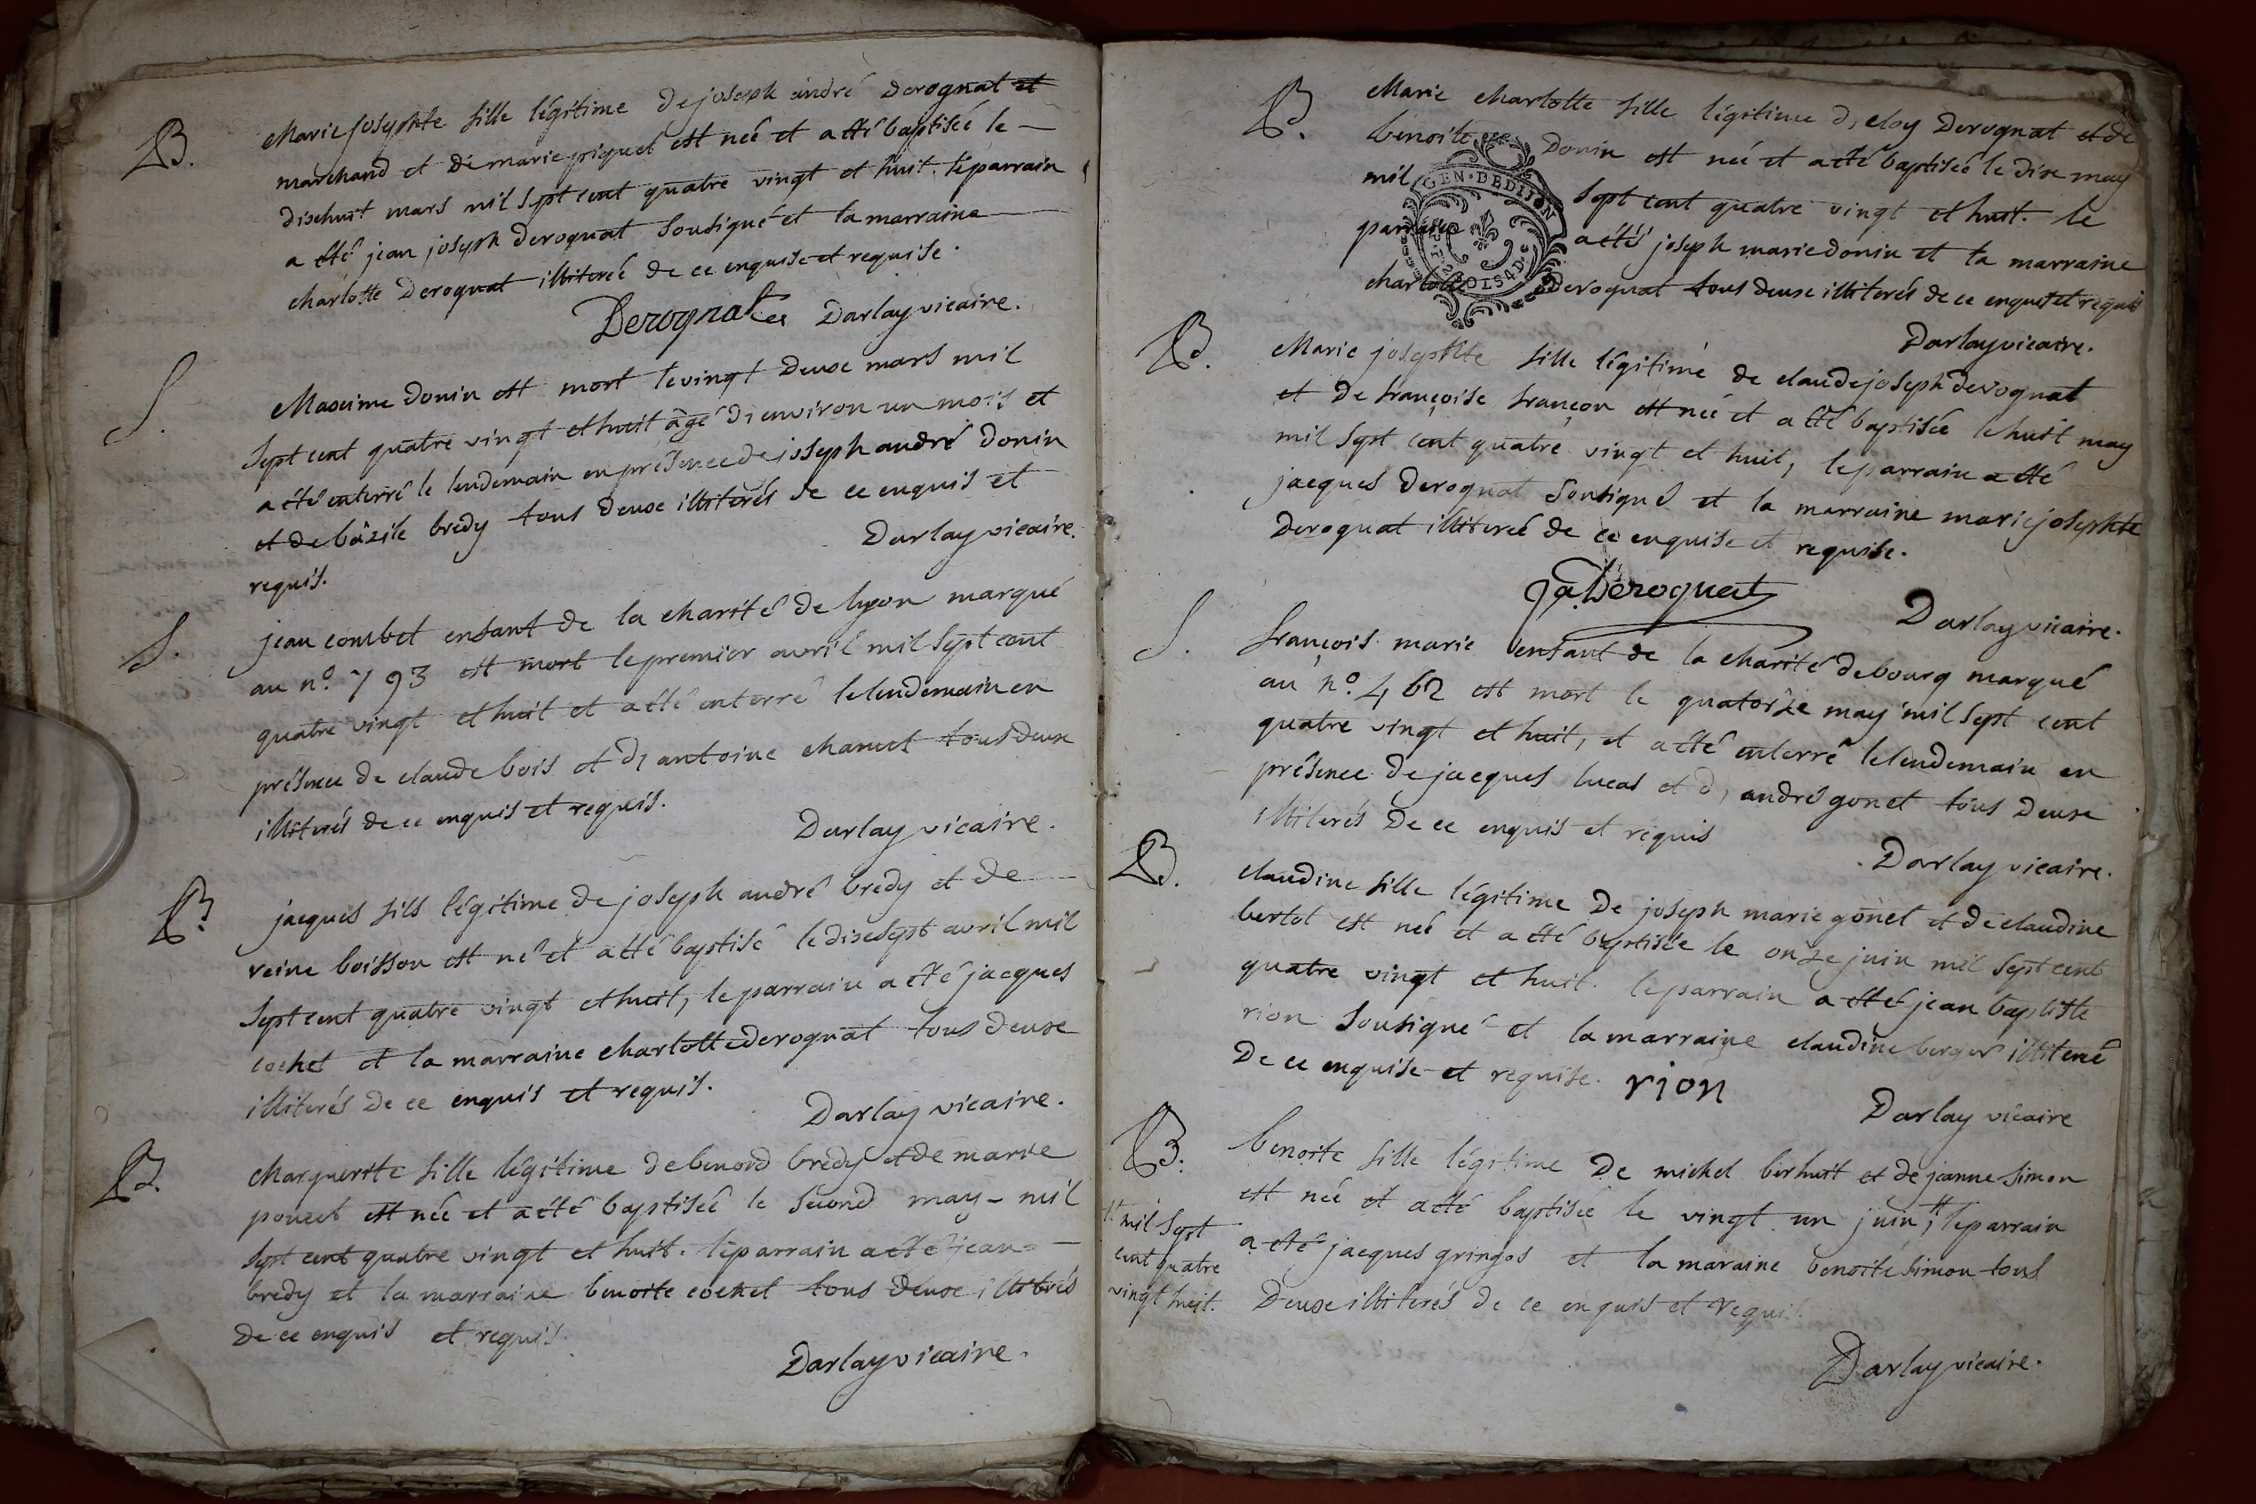 B.
Marie josephte fille légitime de joseph andré Derognat et
marchand et de marie piquet est neé et a eté baptiseé le
dixhuit mars mil sept cent quatre vingt et huit. le parrain
a eté jean joseph derognat sousigné et la marraine
charlotte Derognat illitereé de ce enquise et requise.
Derognat Darlay vicaire.
S.
Maxime donin est mort le vingt deux mars mil
sept cent quatre vingt et huit âgé d, environ un mois et
a été enterré le lendemain en présence de joseph andré donin
et de bâzile bredy tous deux illiterés de ce enquis et
requis.
Darlay vicaire.
S.
jean combet enfant de la charité de lyon marqué
au n.º 793 est mort le premier avril mil sept cent
quatre vingt et huit et a eté enterré le lendemain en
présence de claude bois et d, antoine chanel tous deux
illiterés de ce enquis et requis.
Darlay vicaire.
B.
jacques fils légitime de joseph andré bredy et de
reine boisson est né et a eté baptisé le dixsept avril mil
sept cent quatre vingt et huit, le parrain a eté jacques
cochet et la marraine charlotte derognat tous deux
illiterés de ce enquis et requis.
Darlay vicaire.
B.
Marguerite fille légitime de benoid bredy et de marie
poncet est neé et a eté baptiseé le second may mil
sept cent quatre vingt et huit. le parrain a eté jean
bredy et la marraine benoite cochet tous deux illiterés
de ce enquis et requis.
Darlay vicaire.
B.
Marie charlotte fille légitime d, eloy Derognat et de
benoite Donin est neé et a eté baptiseé le dix may
mil sept cent quatre vingt et huit. le
parrain a eté joseph marie donin et la marraine
charlotte derognat tous deux illiterés de ce enquis et requis
GEN. DE DIJON
2 SOLS 4 D.
Darlay vicaire.
B.
Marie josephte fille légitime de claude joseph derognat
et de françoise françon est neé et a eté baptisée le huit may
mil sept cent quatre vingt et huit, le parrain a eté
jacques derognat sousigné et la marraine marie josephte
derognat illitereé de ce enquise et requise.
ja Derognat
Darlay vicaire.
S.
françois marie enfant de la charité de bourg marqué
au n.º 462 est mort le quatorze may mil sept cent
quatre vingt et huit, et a eté enterré le lendemain en
présence de jacques lucas et d, andré gonet tous deux
illiterés de ce enquis et requis
Darlay vicaire.
B.
claudine fille légitime de joseph marie gonet et de claudine
bertet est neé et a eté baptiseé le onze juin mil sept cent
quatre vingt et huit. le parrain a eté jean baptiste
rion sousigné et la marraine claudine berger illiteré
de ce enquise et requise.
rion
Darlay vicaire
B.
benoite fille légitime de michel berhuit et de jeanne simon
est neé et a eté baptiseé le vingt un juin," le parrain
a eté jacques gringos et la maraine benoite simon tous
deux illiterés de ce enquis et requis.
" mil sept
cent quatre
vingt huit.
Darlay vicaire.